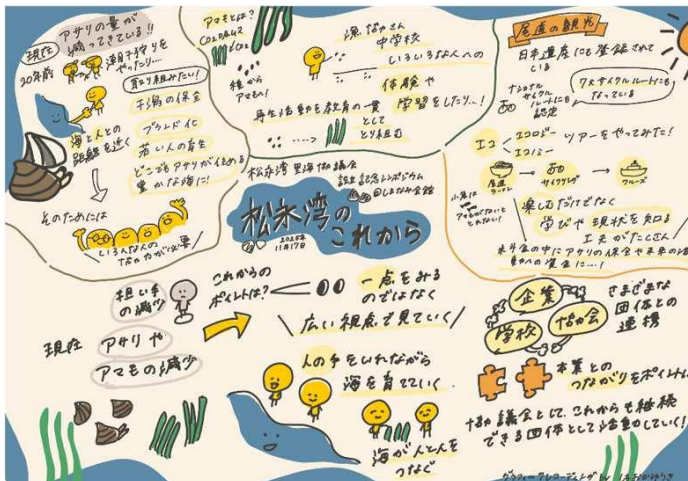 現在
アサリの量が
減ってきている!!
20年前
潮干狩りを
やったり…
取り組みたい!
干潟の保全
海と人との
距離を近く
ブランド化
若い人の育生
どこでもアサリが住める
豊かな海に!
そのためには
いろんな人の
協力が必要
アマモとは?
CO2
種から
アマモへ!
漁師さん
中学校
いろいろな人への
体験や
学習をしたり…!
再生活動も教育の一貫
として
とり組む
尾道の観光
日本遺産にも登録されて
いる
ナショナル
サイクル
ルートにも
認定
ワタサイクルルートにも
なっている
エコ
エコロジー
エコノミー
ツアーをやってみた!
尾道
ラーメン
サイクリング
クルーズ
小魚は
アマモがないと
とれない!
楽しむだけでなく
学びや現状を知る
工夫がたくさん
松永湾里海協議会
設立記念シンポジウム
@しまなみ会館
松永湾の
これから
11月17日
担い手
の減少
現在
アサリや
アマモの減少
これからの
ポイントは?
一点をみる
のではなく
広い視点で見ていく
人の手をいれながら
海を育てていく
海が人と人を
つなぐ
企業
学校
協力会
さまざまな
団体との
連携
本業との
つながりをポイントに
協議会として、これからも継続
できる団体として活動していく!